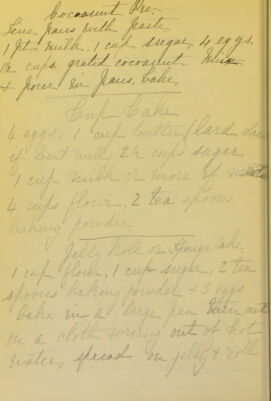 Cocoanut Pie
Line pans with paste.
1 pt. milk, 1 cup sugar, 4 eggs.
1½ cups grated cocoanut. Mix
+ pour in pans. bake
Cup Cake
4 eggs, 1 cup butter (lard does
if beat well) 2½ cups sugar
1 cup milk or more if needed
4 cups flour, 2 tea spoons
baking powder
Jelly Roll or Sponge Cake,
1 cup flour, 1 cup sugar, 2 tea
spoons baking powder + 5 eggs.
bake in a large pan turn out
on a cloth wrung out of hot
water, spread on jelly + roll